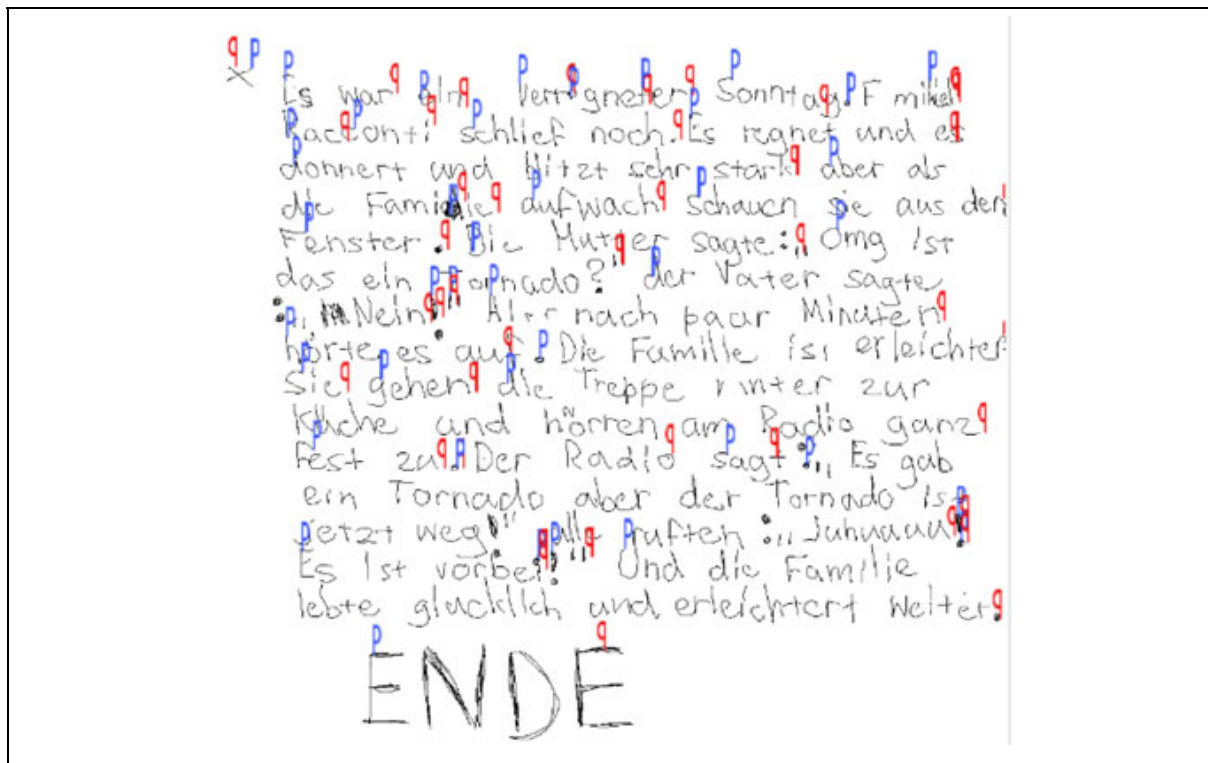 Es war ein verregneter Sonntag. F milie
Racconti schlief noch. Es regnet und es
donnert und blitzt sehr stark aber als
die Familie aufwach schauen sie aus den
Fenster. Die Mutter sagte:„ Omg ist
das ein Tornado?" der Vater sagte
:„ Nein!" nach paar Minuten
hörte es auf. Die Familie ist erleichter
Sie gehen die Treppe runter zur
Küche und hörren am Radio ganz
Fest zu. Der Radio sagt:„ Es gab
ein Tornado aber der Tornado ist
jetzt weg!" alle ruften :„Juhuuuu!
Es ist vorbei!" Und die Familie
lebte glücklich und erleichtert weiter.
ENDE